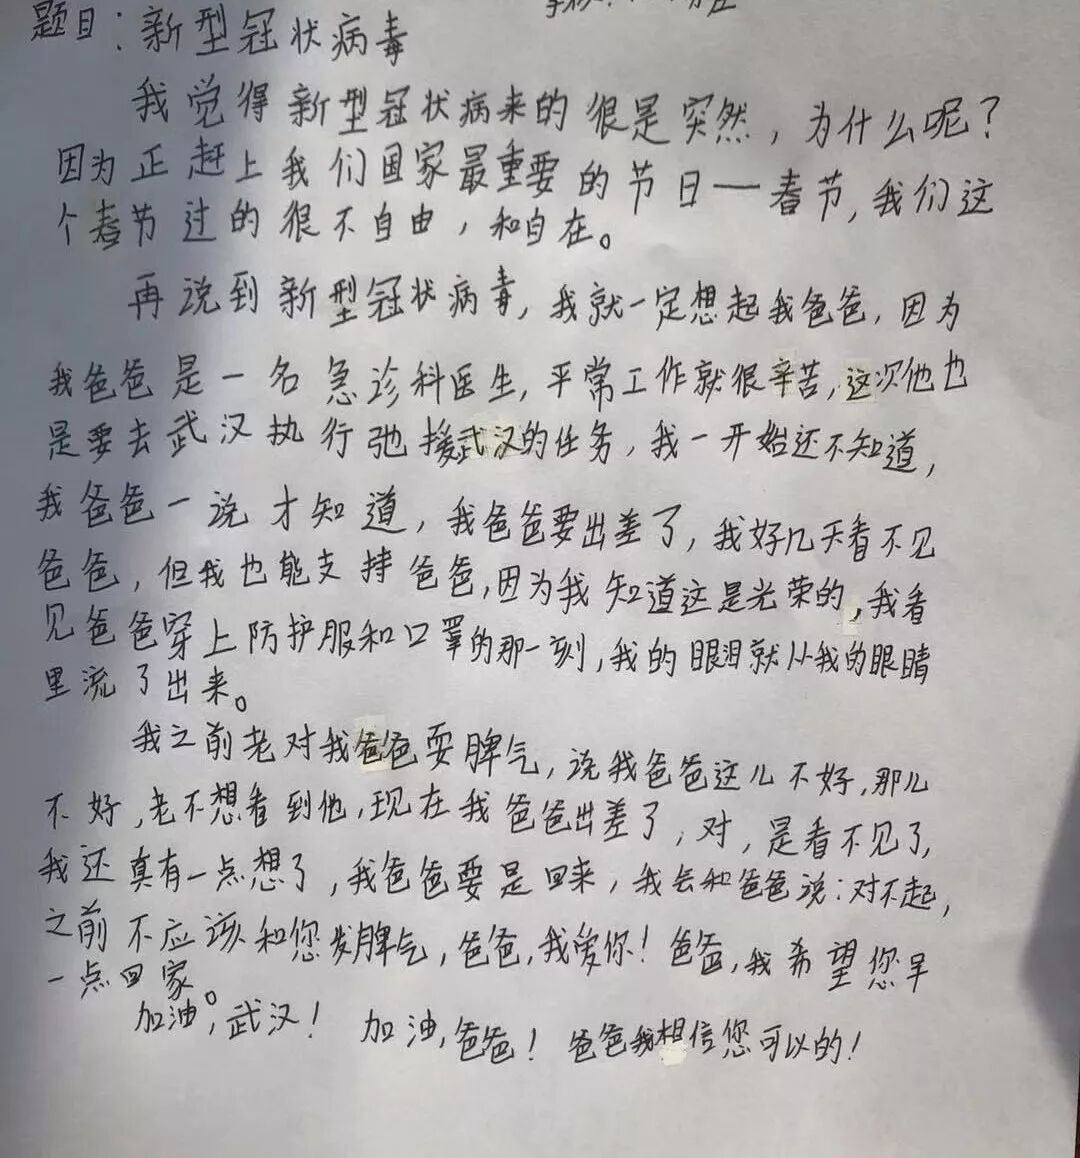 题目：新型冠状病毒
我觉得新型冠状病来的很是突然，为什么呢？
因为正赶上我们国家最重要的节日一春节，我们这
个春节过的很不自由，和自在。
再说到新型冠状病毒，我就一定想起我爸爸，因为
我爸爸是一名急诊科医生，平常工作就很辛苦，这次他也
是要去武汉执行弛援武汉的任务，我一开始还不知道，
我爸爸一说才知道，我爸爸要出差了，我好几天看不见
爸爸，但我也能支持爸爸，因为我知道这是光荣的，我看
见爸爸穿上防护服和口罩的那一刻，我的眼泪就从我的眼睛
里流了出来。
我之前老对我爸爸耍脾气，说我爸爸这儿不好，那儿
不好，老不想看到他，现在我爸爸出差了，对，是看不见了，
我还真有一点想了，我爸爸要是回来，我会和爸爸说：对不起，
之前不应该和您发脾气，爸爸，我爱你！爸爸，我希望您早
一点回家。
加油，武汉！ 加油，爸爸！爸爸我相信您可以的！